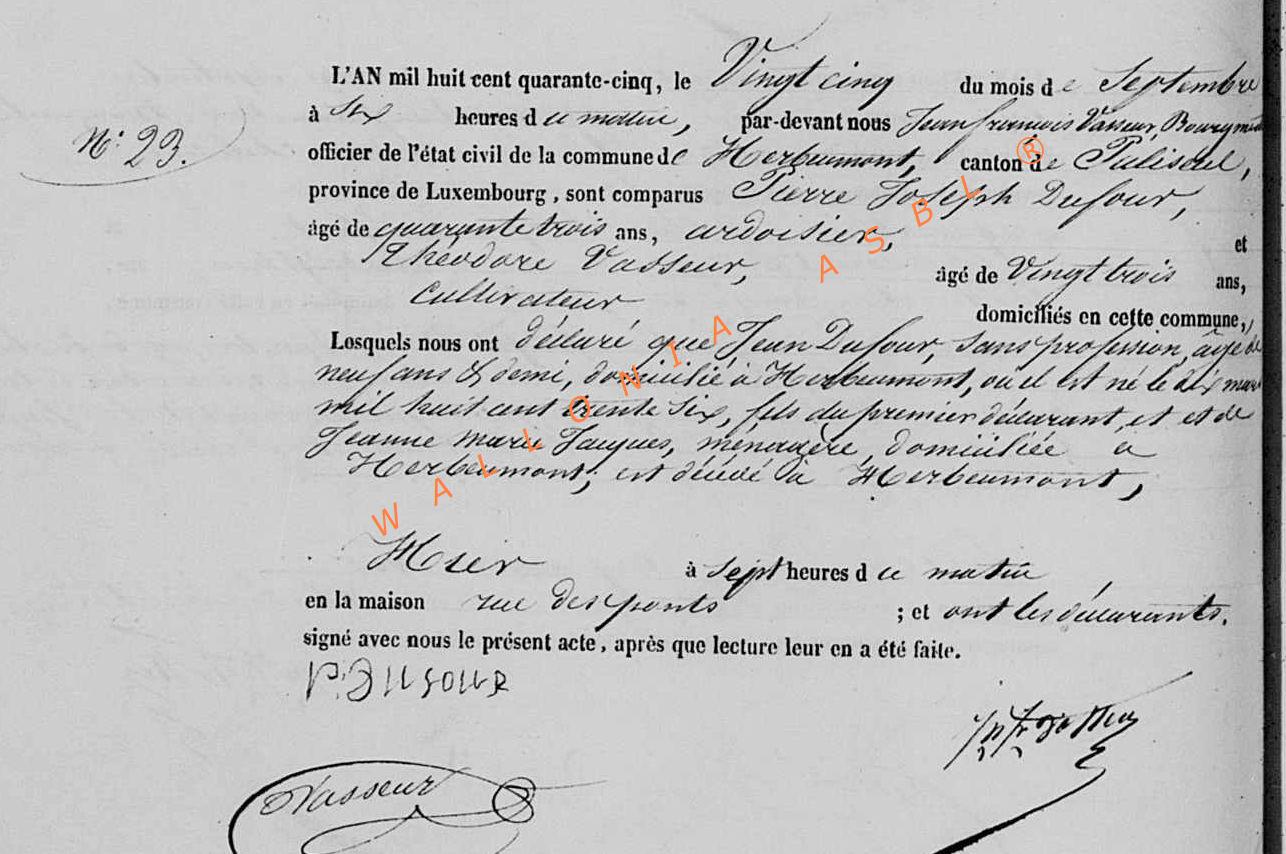 L'AN mil huit cent quarante-cinq, le Vingt cinq du mois de Septembre
à six heures du matin, par-devant nous Jean françois Vasseur, Bourgmestre
N: 23.
officier de l'état civil de la commune de Herbeumont, canton de Paliseul,
province de Luxembourg, sont comparus Pierre Joseph Dufour,
âgé de quarante trois ans, ardoisier, et
Théodore Vasseur, âgé de Vingt trois ans,
Cultivateur domiciliés en cette commune,
Lesquels nous ont déclaré que Jean Dufour, sans profession, âgé de
neuf ans & demi, domicilié à Herbeumont, où il est né le dix mars
mil huit cent trente six, fils du premier déclarant, et et de
Jeanne marie Jacques, ménagère, domiciliée à
Herbeumont; est décédé à Herbeumont,
Hier à sept heures du matin
en la maison rue des ponts ; et ont les déclarants.
signé avec nous le présent acte, après que lecture leur en a été faite.
P. J DUFOUR
Vasseur
WALLONIA ASBL ®